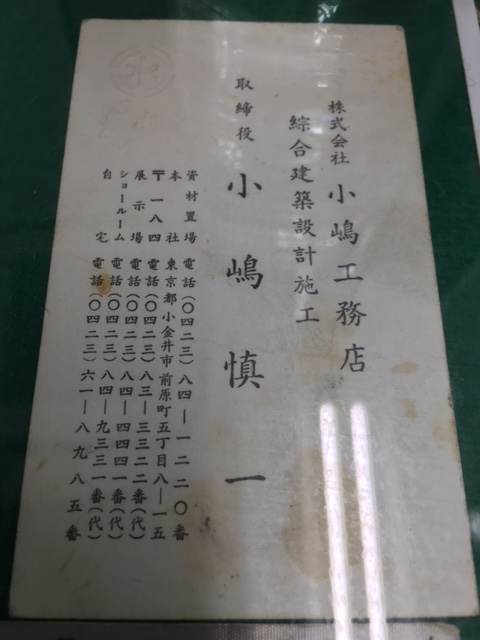 株式会社 小嶋工務店
綜合建築設計施工
取締役 小嶋慎一
資材置場 電話(〇四二三)八四―一二二〇番
本社 東京都小金井市前原町五丁目八―一五
〒一八四 電話(〇四二三)八三―三三二二番(代)
展示場 電話(〇四二三)八四―四四四一番(代)
ショールーム 電話(〇四二三)八四―九三三一番(代)
自宅 電話(〇四二三)六一―八九八五番